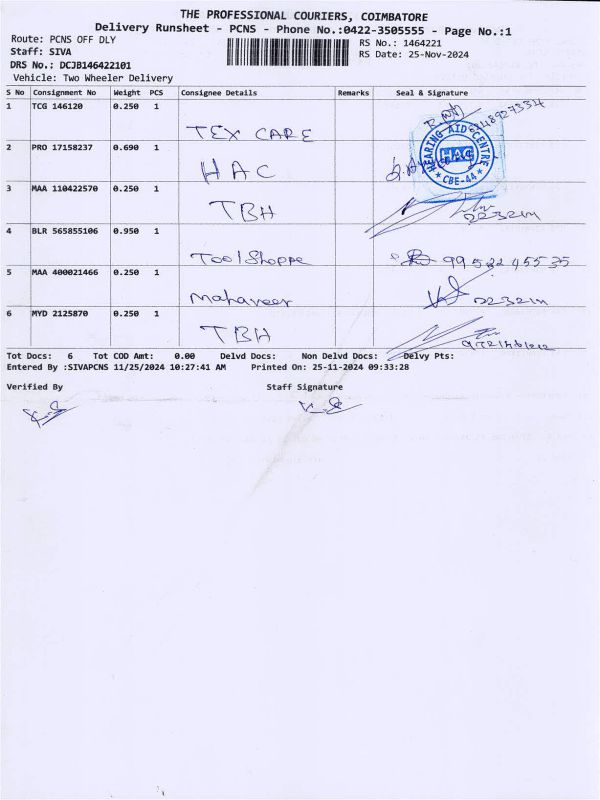 THE PROFESSIONAL COURIERS, COIMBATORE
Delivery Runsheet - PCNS - Phone No.:0422-3505555 - Page No.:1
Route: PCNS OFF DLY RS No.: 1464221
Staff: SIVA RS Date: 25-Nov-2024
DRS No.: DCJB146422101
Vehicle: Two Wheeler Delivery
S No Consignment No Weight PCS Consignee Details Remarks Seal & Signature
1 TCG 146120 0.250 1 TEX CARE
2 PRO 17158237 0.690 1 HAC
HEARING AID CENTRE
HAC
CBE-44
3 MAA 110422570 0.250 1 TBH
4 BLR 565855106 0.950 1 ToolShoppe
5 MAA 400021466 0.250 1 Mahaveer
6 MYD 2125870 0.250 1 TBH
Tot Docs: 6 Tot COD Amt: 0.00 Delvd Docs: Non Delvd Docs: Delvy Pts:
Entered By :SIVAPCNS 11/25/2024 10:27:41 AM Printed On: 25-11-2024 09:33:28
Verified By Staff Signature